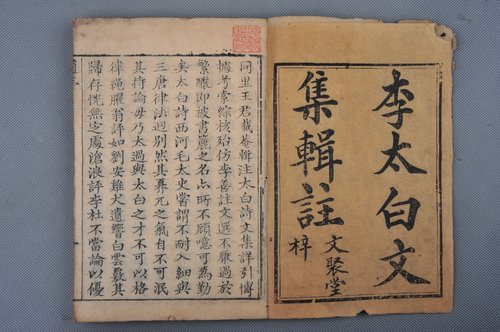 李太白文
集輯註
文聚堂
梓
同里王君載菴輯注太白詩文集詳引博
據考索綜核殆仿李善註文選不厭過於
繁釀即被書簏之名亦所不顧噫可為勤
矣太白詩西河毛太史嘗謂不耐入細與
三唐律法迥别然其元之氣自不可泯
其持論毋乃太過與太白之才不可以格
律繩臞翁評如劉安雞犬遺響白雲覈其
歸存恍無定處滄浪評李杜不當論以優